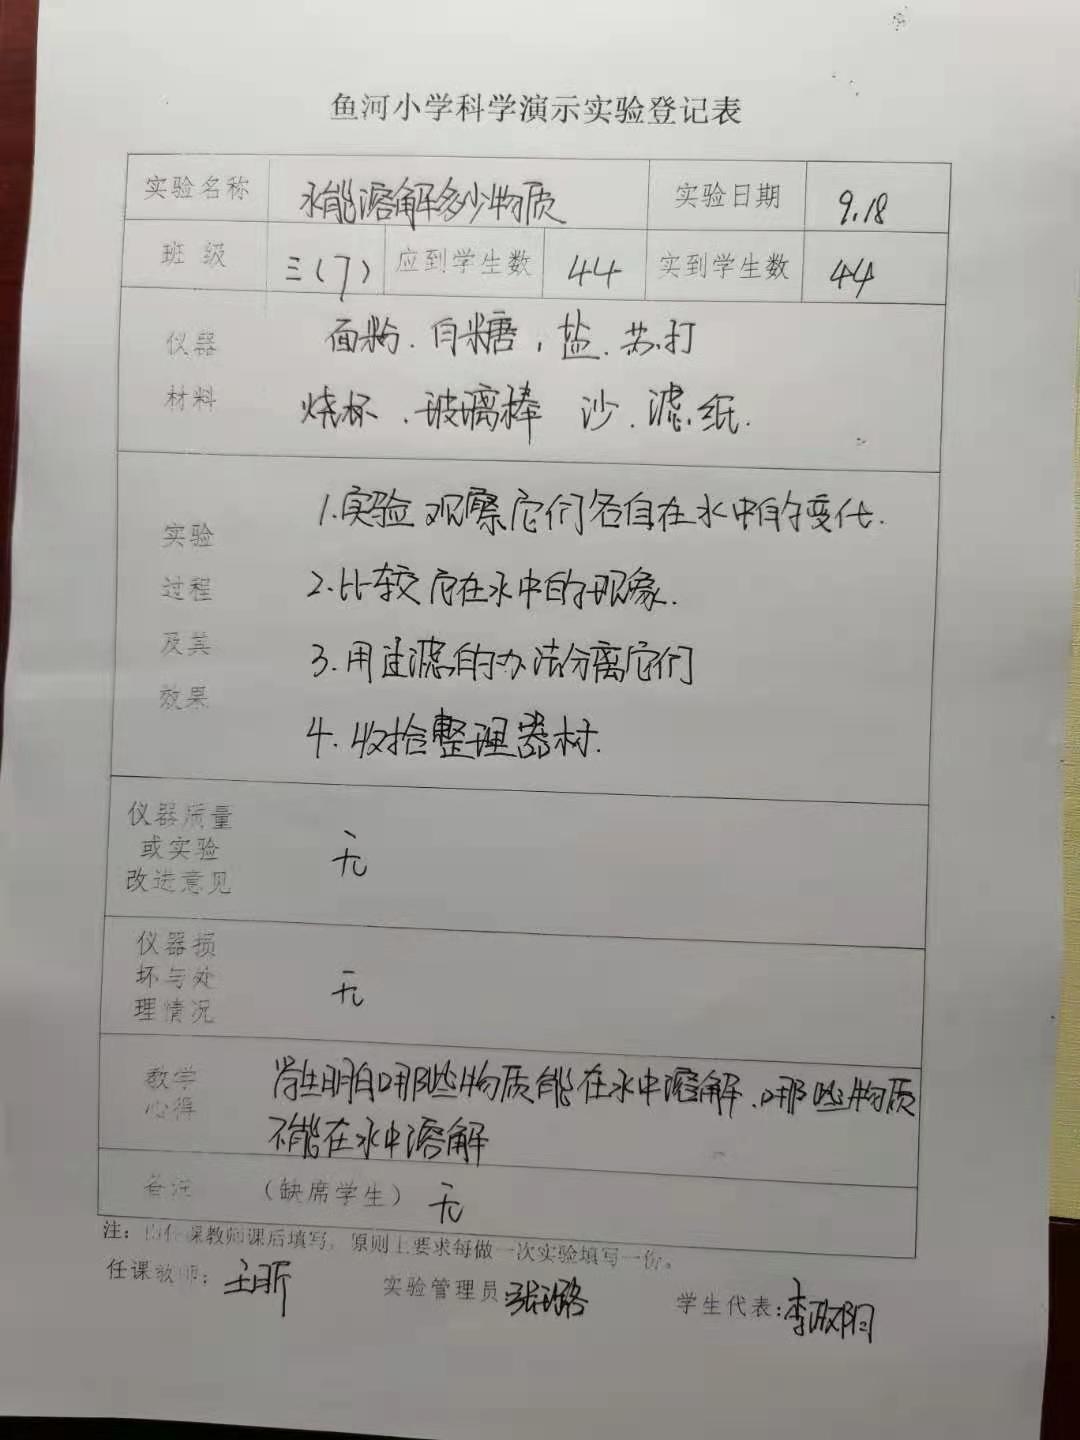 鱼河小学科学演示实验登记表
实验名称 水能溶解多少物质 实验日期 9.18
班 级 三(7) 应到学生数 44 实到学生数 44
仪器 面粉、白糖，盐、苏打
材料 烧杯、玻璃棒 沙、滤纸.
实验 1.实验观察它们各自在水中的变化.
过程 2.比较它在水中的现象.
及其 3.用过滤的办法分离它们
效果 4.收拾整理器材.
仪器质量
或实验 无
改进意见
仪器损
坏与处 无
理情况
教学 学生明白哪些物质能在水中溶解.哪些物质
心得 不能在水中溶解
备注 （缺席学生） 无
注：由任课教师课后填写，原则上要求每做一次实验填写一份。
任课教师： 实验管理员：张璐 学生代表：李